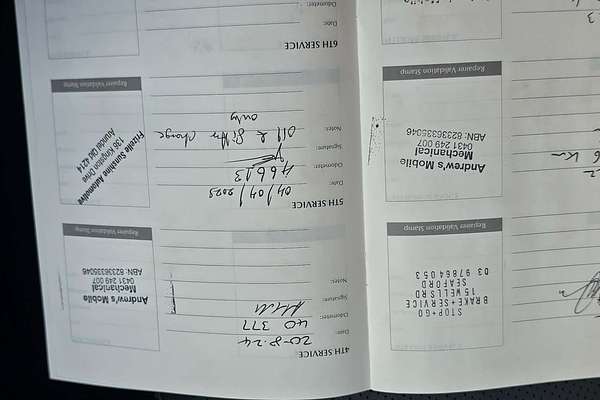 STOP+GO
BRAKE+SERVICE
15 WELLS RD
SEAFORD
03 97864053
Repairer Validation Stamp
Andrew's Mobile
Mechanical
0431 249 007
Repairer Validation Stamp
4TH SERVICE
Date: 20-8-24
Odometer: 40 377
Signature:
Notes:
Andrew's Mobile
Mechanical
0431 249 007
Repairer Validation Stamp
5TH SERVICE
Date: 04/04/2023
Odometer: 46613
Signature:
Notes: Oil & Filter change
only
Frizelle Sunshine Automotive
136 Kingston Drive
Arundel Qld 4214
Repairer Validation Stamp
6TH SERVICE
Date:
Odometer: